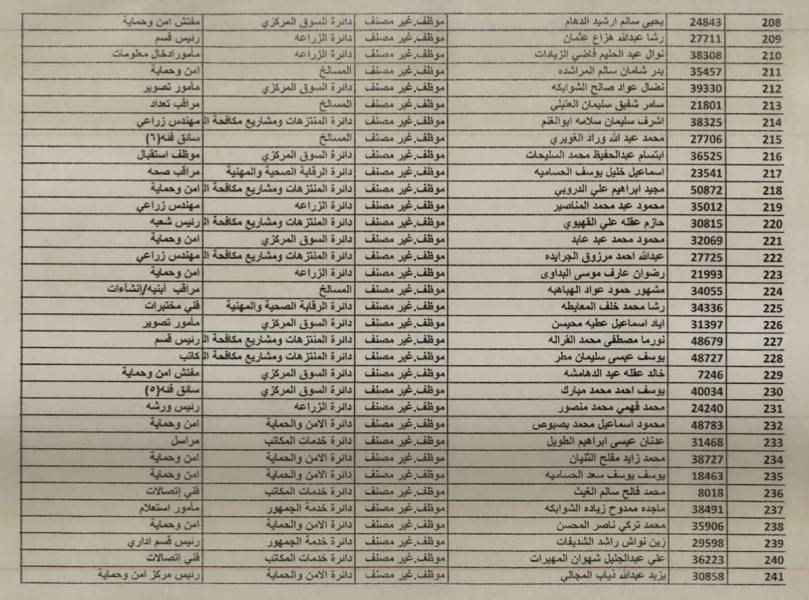 208 24843 يحيى سالم ارشيد الدهام موظف.غير مصنف دائرة السوق المركزي مفتش امن وحماية
209 27711 رشا عبدالله هزاع عثمان موظف.غير مصنف دائرة الزراعه رئيس قسم
210 38308 نوال عبد الحليم فاضي الزيادات موظف.غير مصنف دائرة الزراعه مأمورادخال معلومات
211 35457 بدر شامان سالم المراشده موظف.غير مصنف المسالخ امن وحماية
212 39330 نضال عواد صالح الشوابكه موظف.غير مصنف دائرة السوق المركزي مأمور تصوير
213 21801 سامر شفيق سليمان العتيلي موظف.غير مصنف المسالخ مراقب تعداد
214 38325 اشرف سليمان سلامه ابوالغنم موظف.غير مصنف دائرة المنتزهات ومشاريع مكافحة ال مهندس زراعي
215 27706 محمد عبد الله وراد الغويري موظف.غير مصنف المسالخ سائق فئه(٦)
216 36525 ابتسام عبدالحفيظ محمد السليحات موظف.غير مصنف دائرة السوق المركزي موظف استقبال
217 23541 اسماعيل خليل يوسف الحساميه موظف.غير مصنف دائرة الرقابة الصحية والمهنية مراقب صحه
218 50872 مجيد ابراهيم علي الدروبي موظف.غير مصنف دائرة المنتزهات ومشاريع مكافحة ال امن وحماية
219 35012 محمود عيد محمد المناصير موظف.غير مصنف دائرة الزراعه مهندس زراعي
220 30815 حازم عقله علي القهيوي موظف.غير مصنف دائرة المنتزهات ومشاريع مكافحة ال رئيس شعبه
221 32069 محمود محمد عبد عابد موظف.غير مصنف دائرة السوق المركزي امن وحماية
222 27725 عبدالله احمد مرزوق الجرايده موظف.غير مصنف دائرة المنتزهات ومشاريع مكافحة ال مهندس زراعي
223 21993 رضوان عارف موسى البداوى موظف.غير مصنف دائرة الزراعه امن وحماية
224 34055 مشهور حمود عواد الهباهبه موظف.غير مصنف المسالخ مراقب أبنيه/إنشاءات
225 34336 رشا محمد خلف المعايطه موظف.غير مصنف دائرة الرقابة الصحية والمهنية فني مختبرات
226 31397 اياد اسماعيل عطيه محيسن موظف.غير مصنف دائرة السوق المركزي مأمور تصوير
227 48679 نورما مصطفى محمد القراله موظف.غير مصنف دائرة المنتزهات ومشاريع مكافحة ال رئيس قسم
228 48727 يوسف عيسى سليمان مطر موظف.غير مصنف دائرة المنتزهات ومشاريع مكافحة ال كاتب
229 7246 خالد عقله عيد الدهامشه موظف.غير مصنف دائرة السوق المركزي مفتش امن وحماية
230 40034 يوسف احمد محمد مبارك موظف.غير مصنف دائرة السوق المركزي سائق فئه(٥)
231 24240 محمد فهمي محمد منصور موظف.غير مصنف دائرة الزراعه رئيس ورشه
232 48783 محمود اسماعيل محمد بصبوص موظف.غير مصنف دائرة الامن والحماية امن وحماية
233 31468 عدنان عيسى ابراهيم الطويل موظف.غير مصنف دائرة خدمات المكاتب مراسل
234 38727 محمد زايد مفلح الثنيان موظف.غير مصنف دائرة الامن والحماية امن وحماية
235 18463 يوسف يوسف سعد الحساميه موظف.غير مصنف دائرة الامن والحماية امن وحماية
236 8018 محمد فالح سالم الغيث موظف.غير مصنف دائرة خدمات المكاتب فني إتصالات
237 38491 ماجده ممدوح زياده الشوابكه موظف.غير مصنف دائرة خدمة الجمهور مأمور استعلام
238 35906 محمد تركي ناصر المحسن موظف.غير مصنف دائرة الامن والحماية امن وحماية
239 29598 زين نواش راشد الشديفات موظف.غير مصنف دائرة خدمة الجمهور رئيس قسم اداري
240 36223 علي عبدالجليل شهوان المهيرات موظف.غير مصنف دائرة خدمات المكاتب فني إتصالات
241 30858 يزيد عبدالله ذياب المجالي موظف.غير مصنف دائرة الامن والحماية رئيس مركز امن وحماية